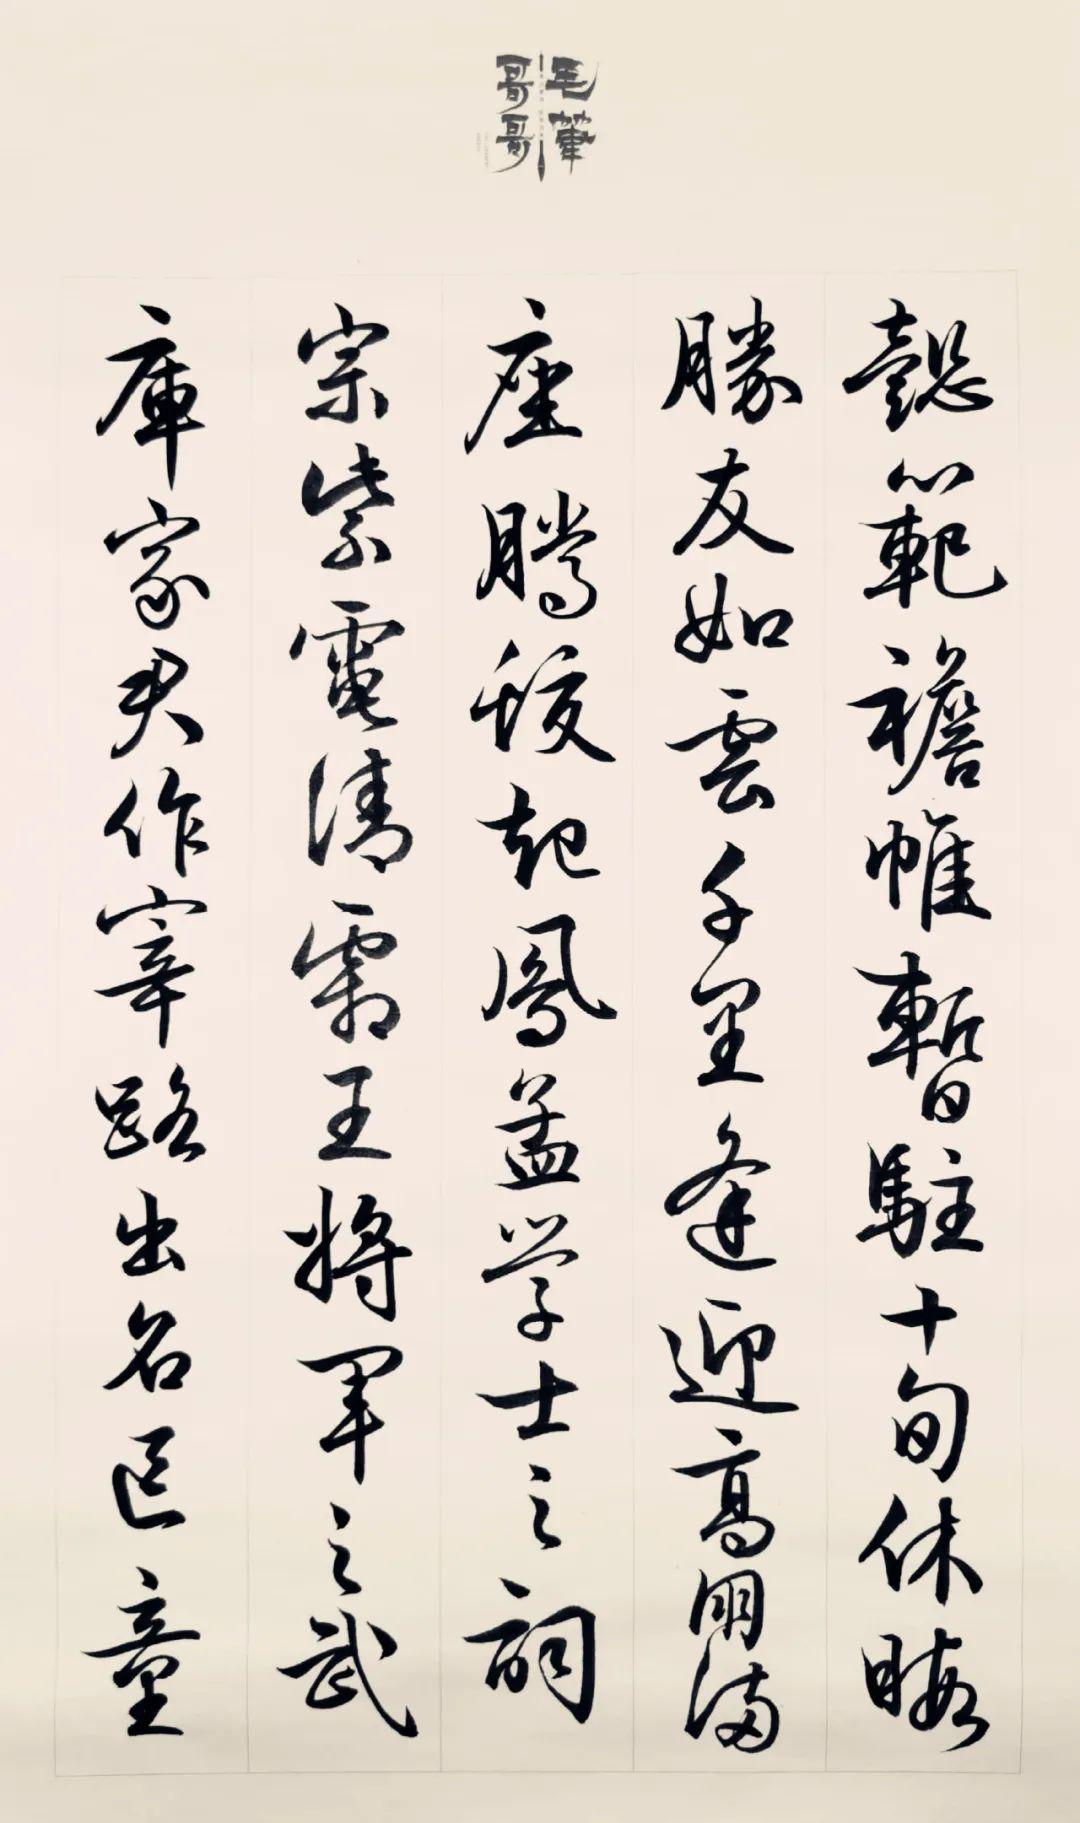 毛筆
哥哥
懿範襜帷暫駐十旬休暇
勝友如雲千里逢迎高朋滿
座騰蛟起鳳孟学士之詞
宗紫電清霜王將軍之武
庫家君作宰路出名區童